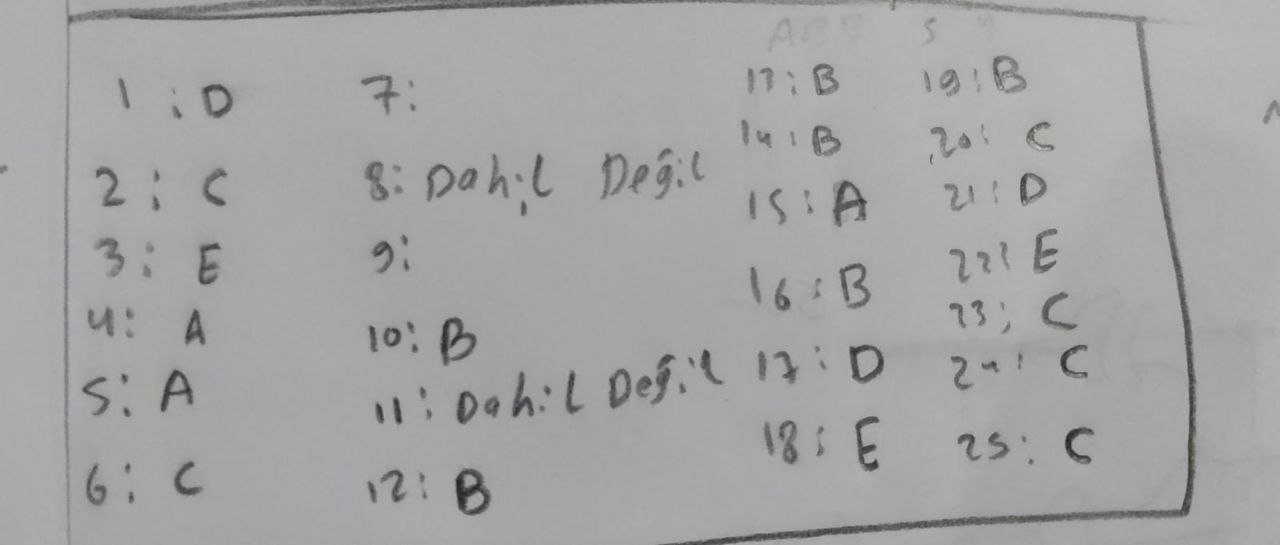 1 : D
2 : C
3 : E
4 : A
5 : A
6 : C
7 :
8 : Dahil Değil
9 :
10 : B
11 : Dahil Değil
12 : B
13 : B
14 : B
15 : A
16 : B
17 : D
18 : E
19 : B
20 : C
21 : D
22 : E
23 ; C
24 : C
25 : C